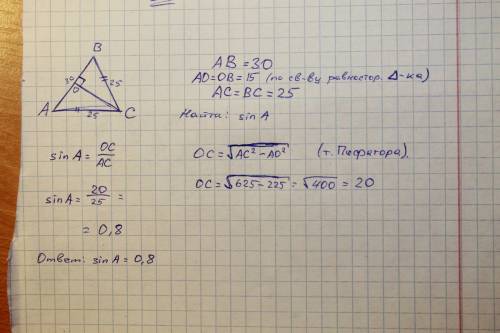 B
30
25
O
A
25
C
AB = 30
AO=OB=15 (по св-ву равностор. Δ-ка)
AC=BC=25
Найти: sin A
sin A = OC/AC
OC=√AC²-AO² (т. Пифагора).
sin A = 20/25 =
OC=√625-225 = √400 = 20
= 0,8
Ответ: sin A = 0,8